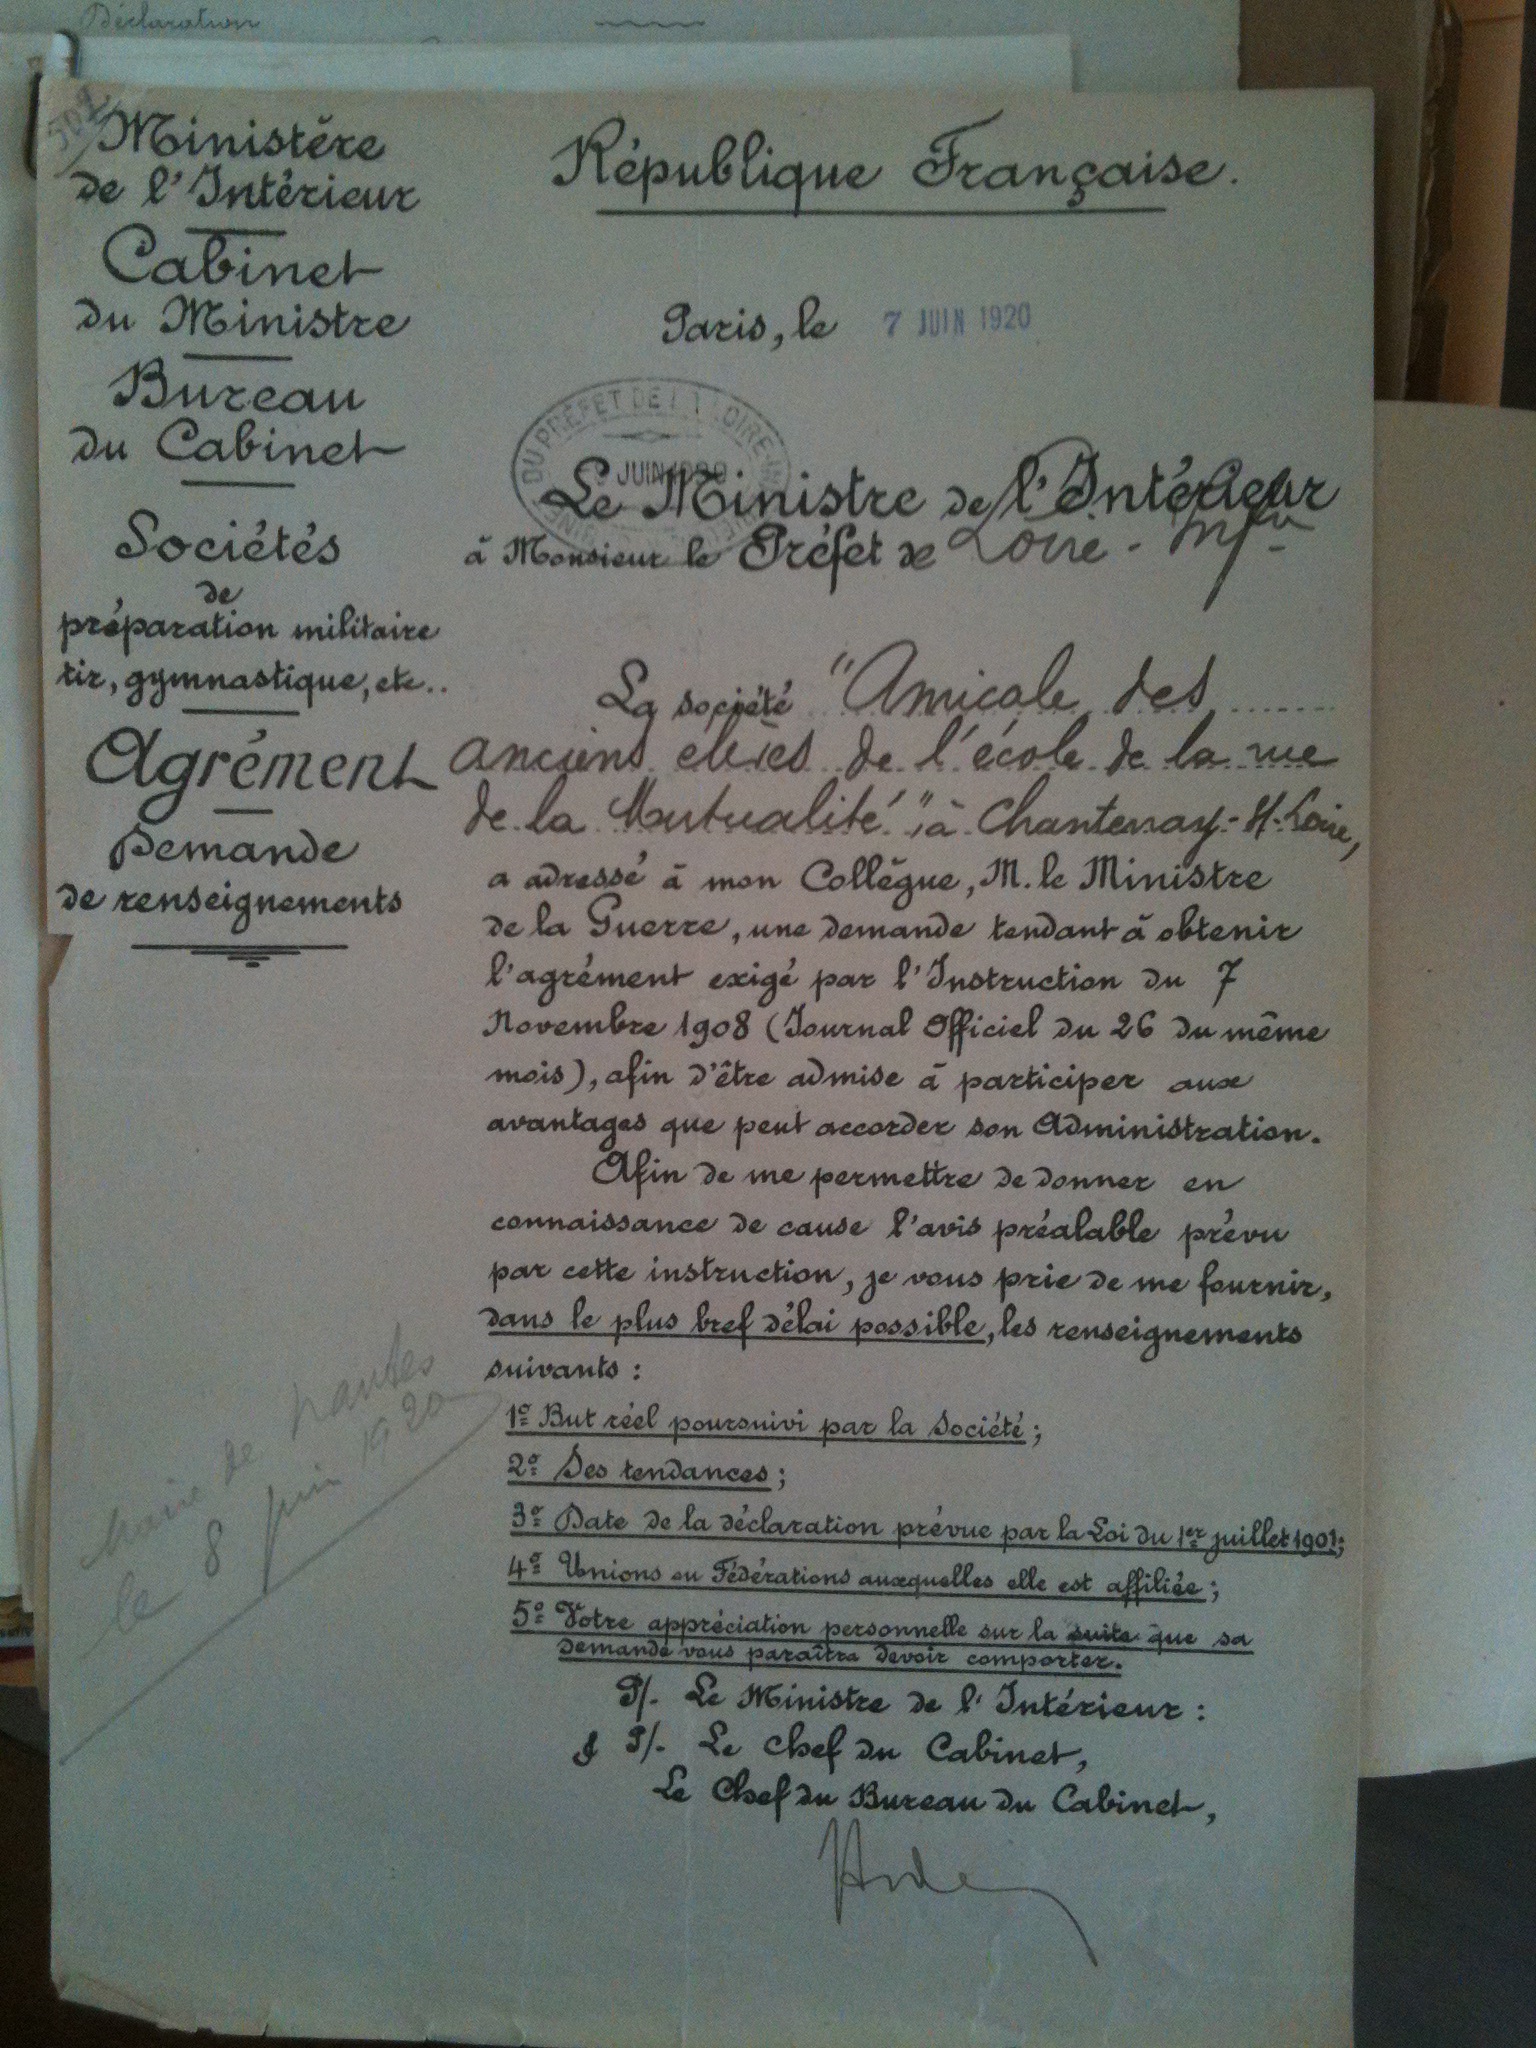 Déclaration
Ministère
de l'Intérieur
Cabinet
du Ministre
Bureau
du Cabinet
Sociétés
de
préparation militaire
tir, gymnastique, etc..
Agrément
Demande
de renseignements
République Française.
Paris, le 7 JUIN 1920
DU PRÉFET DE LA LOIRE
JUIN 1920
Le Ministre de l'Intérieur
à Monsieur le Préfet de Loire-Infre
La société "Amicale des
anciens élèves de l'école de la rue
de la Mutualité" à Chantenay-s/-Loire,
a adressé à mon Collègue, M. le Ministre
de la Guerre, une demande tendant à obtenir
l'agrément exigé par l'Instruction du 7
Novembre 1908 (Journal Officiel du 26 du même
mois), afin d'être admise à participer aux
avantages que peut accorder son Administration.
Afin de me permettre de donner en
connaissance de cause l'avis préalable prévu
par cette instruction, je vous prie de me fournir,
dans le plus bref délai possible, les renseignements
suivants :
1º But réel poursuivi par la Société ;
2º Ses tendances ;
3º Date de la déclaration prévue par la Loi du 1er juillet 1901;
4º Unions ou Fédérations auxquelles elle est affiliée ;
5º Votre appréciation personnelle sur la suite que sa
demande vous paraîtra devoir comporter.
P/. Le Ministre de l'Intérieur :
P/. Le Chef du Cabinet,
Le Chef du Bureau du Cabinet,
Maire de Nantes
le 8 juin 1920